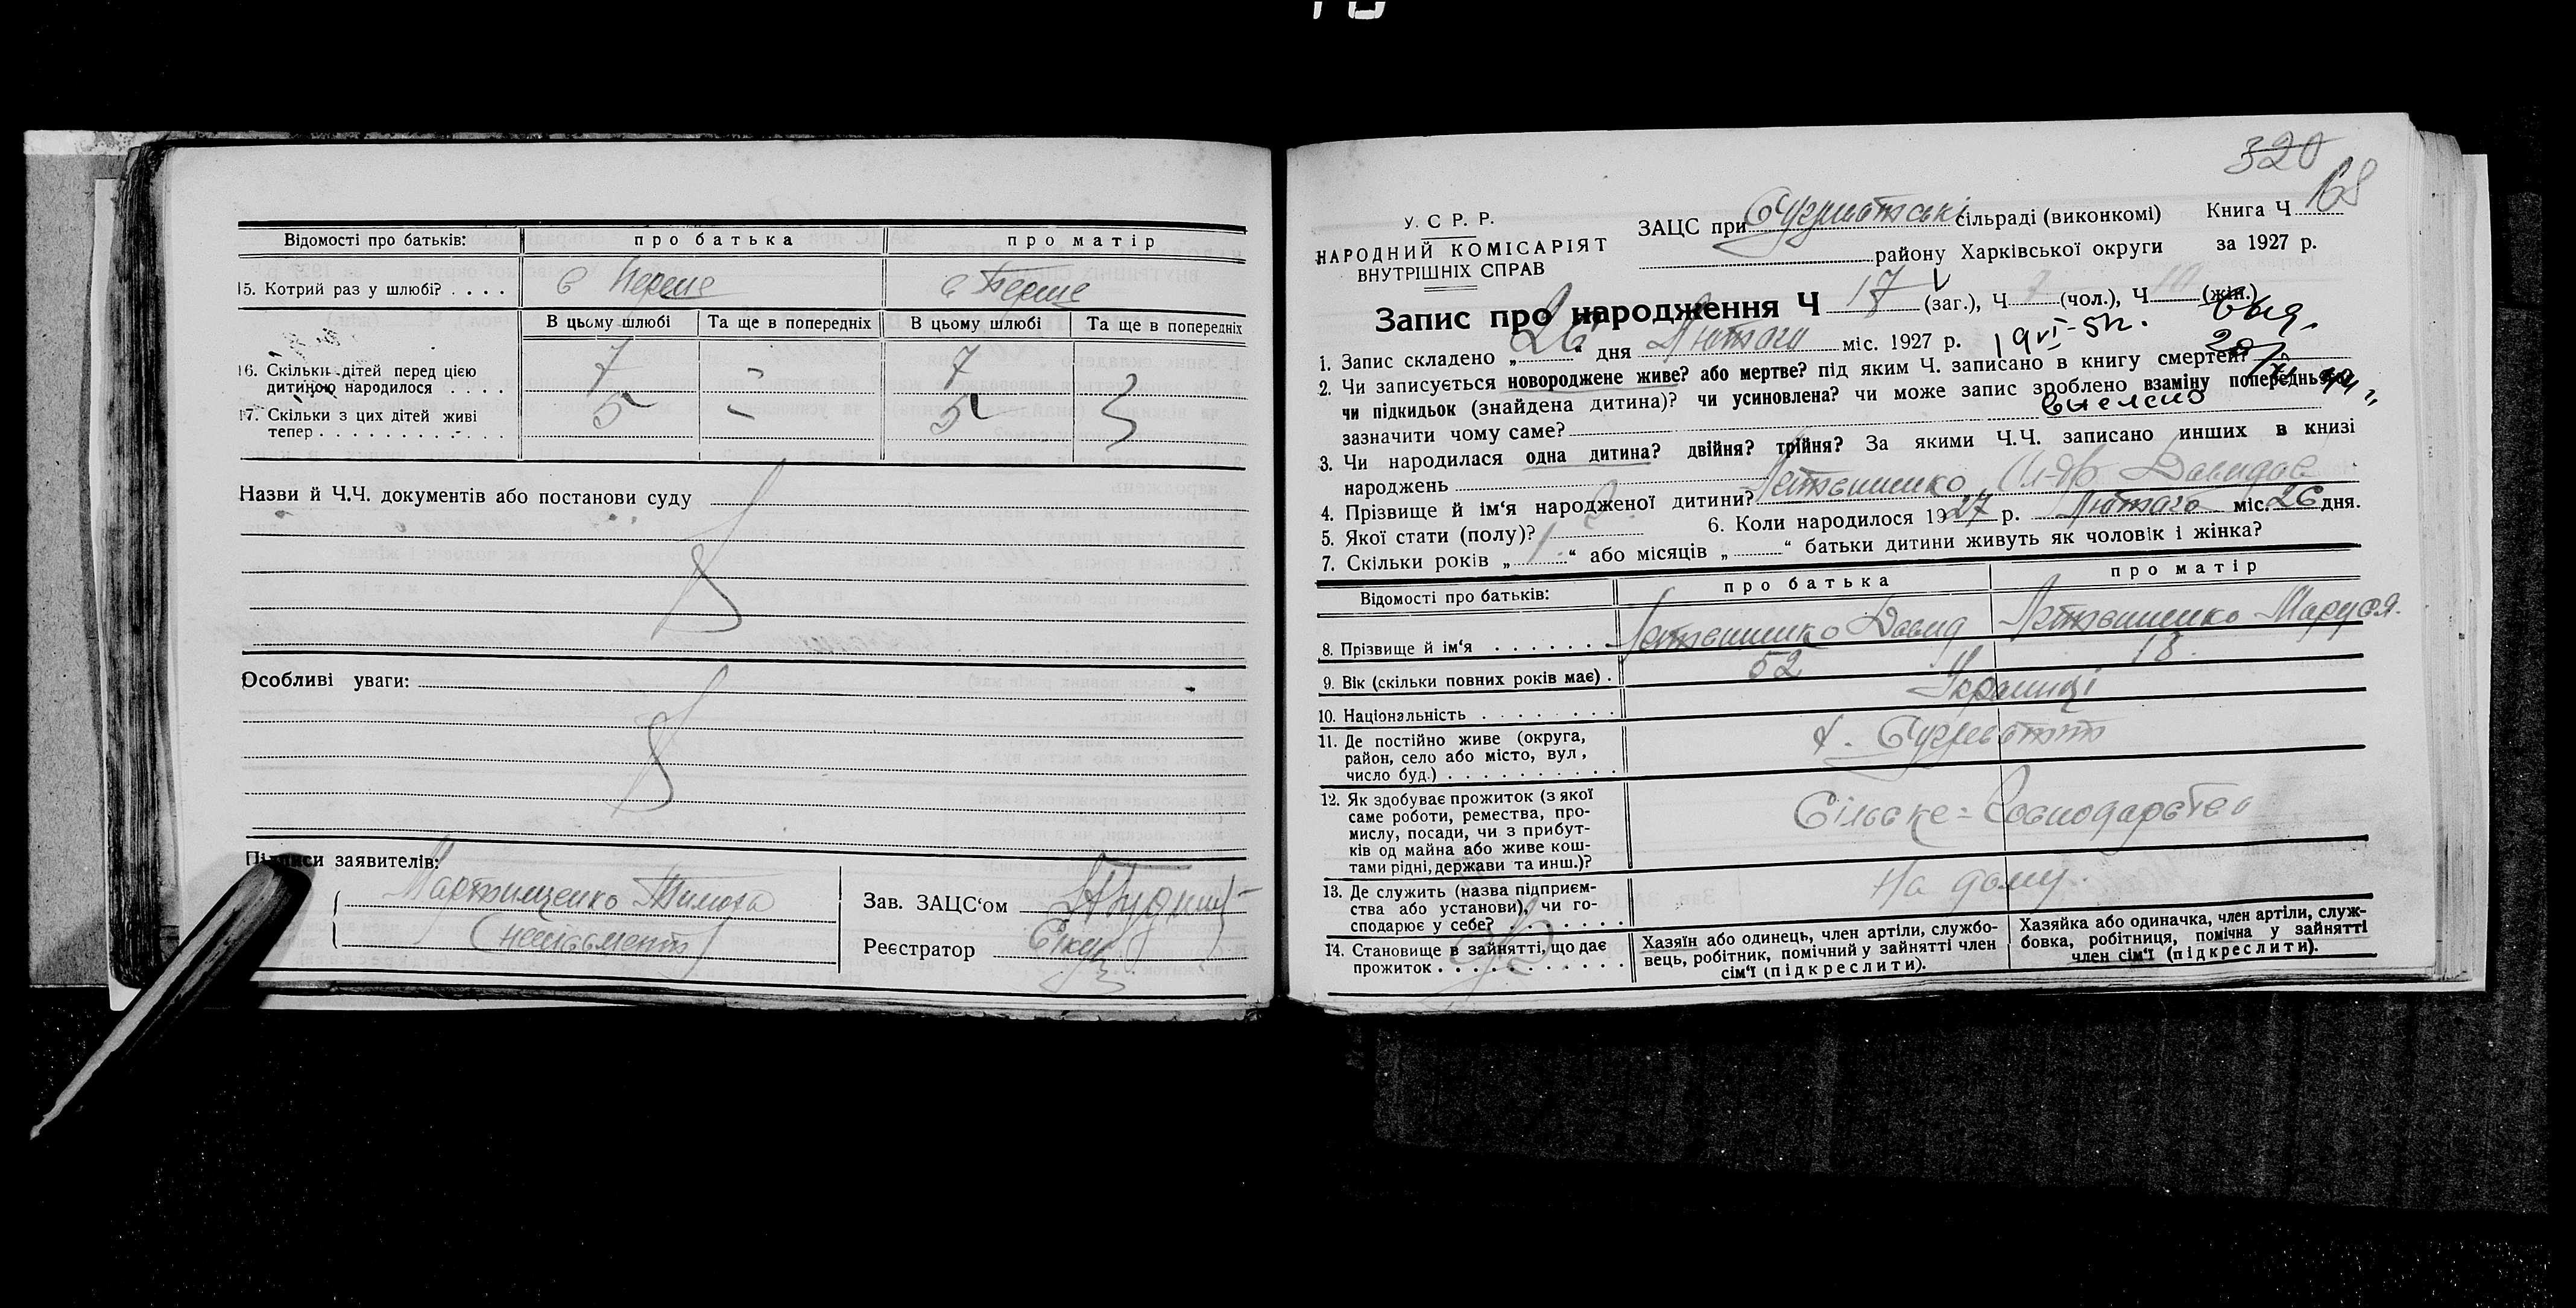 Відомості про батьків: про батька про матір
15. Котрий раз у шлюбі? . . . . в перше в перше
В цьому шлюбі Та ще в попередніх В цьому шлюбі Та ще в попередніх
16. Скільки дітей перед цією
дитиною народилося . . . . 7 - 7
17. Скільки з цих дітей живі
тепер . . . . . . . . . . . . 5 - 5
Назви й Ч.Ч. документів або постанови суду
Особливі уваги:
Підписи заявителів:
Мартищенко Тимоха
Зав. ЗАЦС‘ом
Реєстратор
320
168
У. С. Р. Р.
НАРОДНИЙ КОМІСАРІЯТ
ВНУТРІШНІХ СПРАВ
ЗАЦС при сільраді (виконкомі) Книга Ч
району Харківської округи за 1927 р.
Запис про народження Ч 17 (заг.), Ч 7 (чол.), Ч 10 (жін.)
1. Запис складено „26“ дня Лютаго міс. 1927 р.
2. Чи записується новороджене живе? або мертве? під яким Ч. записано в книгу смертей?
чи підкидьок (знайдена дитина)? чи усиновлена? чи може запис зроблено взаміну попереднього
зазначити чому саме?
3. Чи народилася одна дитина? двійня? трійня? За якими Ч.Ч. записано инших в книзі
народжень
4. Прізвище й ім‘я народженої дитини?
5. Якої стати (полу)? 6. Коли народилося 1927 р. Лютаго міс. 26 дня.
7. Скільки років „ “ або місяців „ “ батьки дитини живуть як чоловік і жінка?
Відомості про батьків: про батька про матір
8. Прізвище й ім‘я . . . . . . . Давид Маруся.
9. Вік (скільки повних років має) . 52 18.
10. Національність . . . . . . . . Українці
11. Де постійно живе (округа,
район, село або місто, вул,
число буд.) . . . . . . . . . .
12. Як здобуває прожиток (з якої
саме роботи, ремества, про-
мислу, посади, чи з прибут-
ків од майна або живе кош-
тами рідні, держави та инш.)? Сільське=Господарство
13. Де служить (назва підприєм-
ства або установи), чи го-
сподарює у себе? . . . . . . . на дому.
14. Становище в зайнятті, що дає
прожиток . . . . . . . . . . .
Хазяїн або одинець, член артіли, службо-
вець, робітник, помічний у зайнятті член
сім‘ї (підкреслити).
Хазяйка або одиначка, член артіли, служ-
бовка, робітниця, помічна у зайнятті
член сім‘ї (підкреслити).